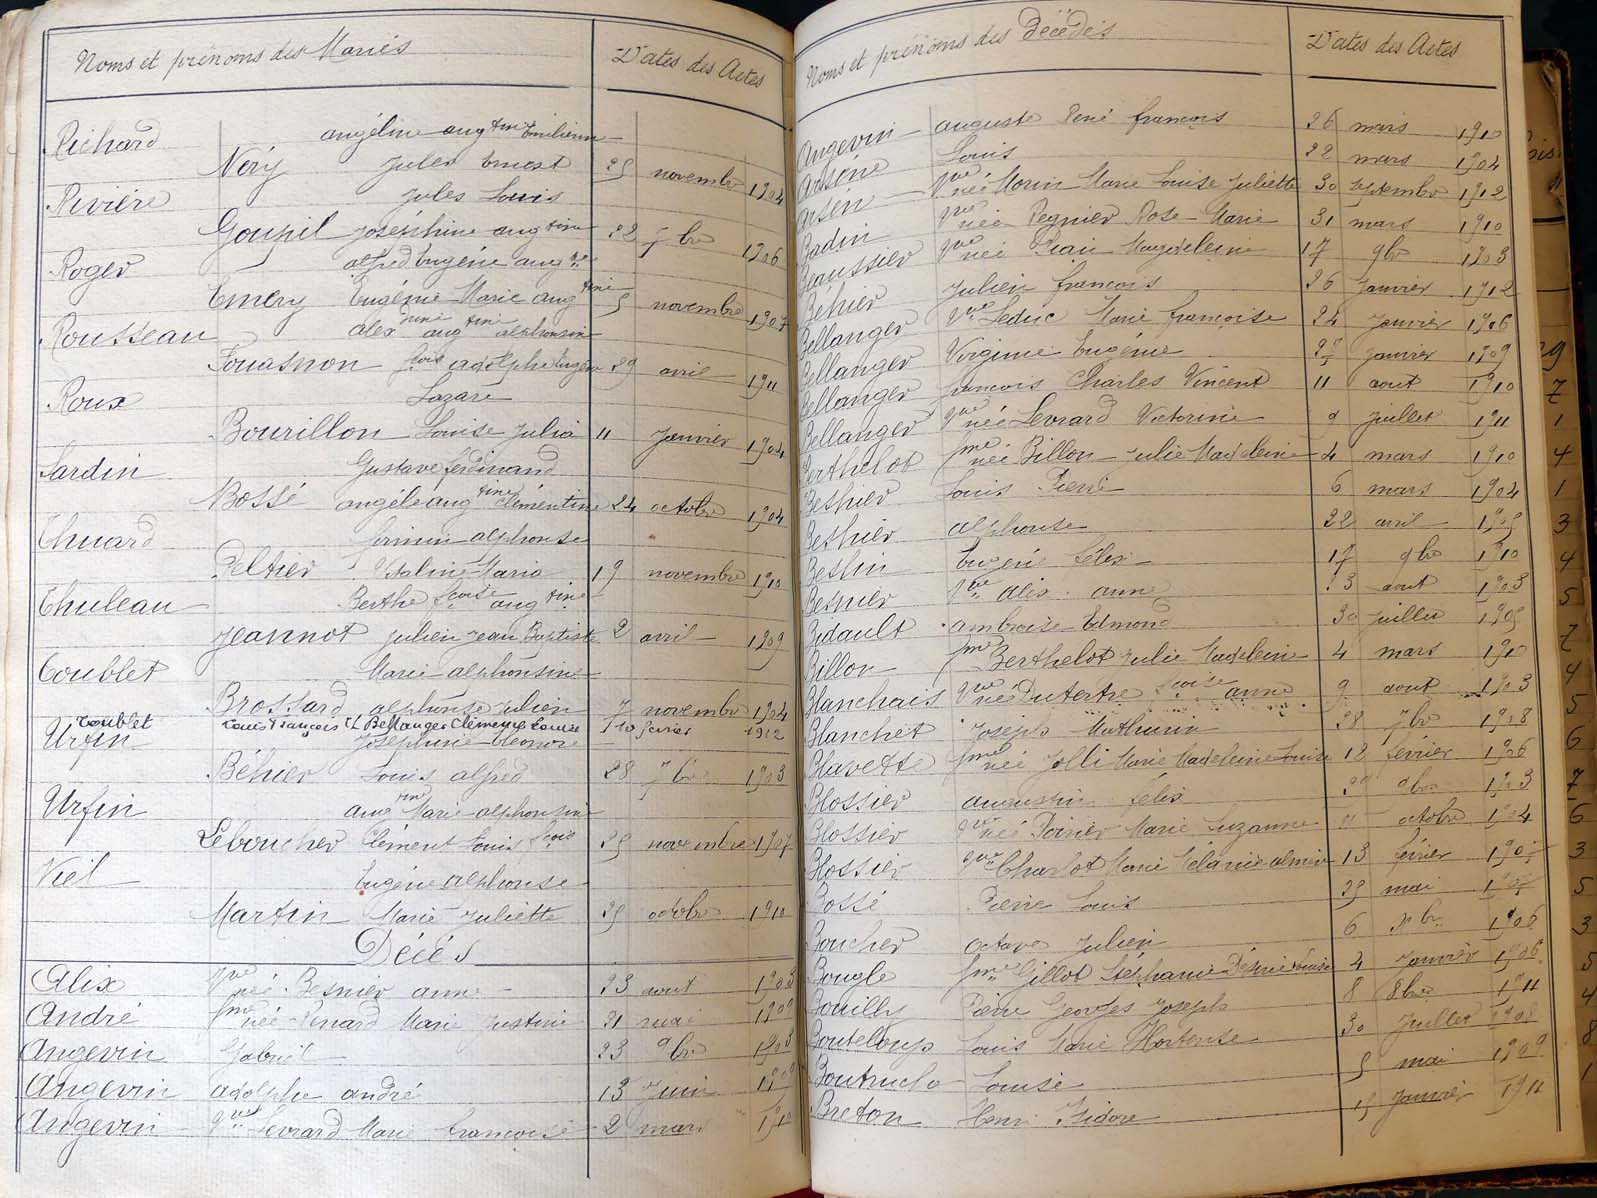 Noms et prénoms des Mariés Dates des Actes
Richard angéline aug tin Emilienne
Nory Jules Ernest 25 novembre 1904
Rivière Jules Louis
Goupil Joséphine aug tine 22 7bre 1906
Roger alfred Eugène aug
Emery Eugénie Marie aug tine 5 novembre 1907
Rousseau alex aug tine alphonsine
Fouasnon adolphe Eugène 29 avril 1911
Roux Lazare
Bourillon Louise Julia 11 Janvier 1904
Sardin Gustave ferdinand
Bossé angèle aug tine Clémentine 24 octobre 1904
Thuard firmin alphonse
Peltier Maria 19 novembre 1910
Thuleau Berthe fcoise aug tine
Jeannot Julien Jean Baptiste 2 avril 1909
Toublet Marie alphonsine
Brossard alphonse Julien 7 novembre 1904
Toublet Louis François Bellanger Clémence Louise 10 février 1912
Urfin Joséphine Léonore
Béhier Louis alfred 28 7bre 1903
Urfin aug tine Marie alphonsine
Leboucher Clément Louis fcois 25 novembre 1907
Viel Eugène alphonse
Martin Marie Juliette 25 octobre 1910
Décès
Alix vve née Besnier anne 23 aout 1903
André fme née Renard Marie Justine 21 mai 1909
Angevin Gabriel 23 9bre 1903
Angevin adolphe andré 13 Juin
Angevin vve Levrard Marie françoise 2 mars 1910
Noms et prénoms des Décédés Dates des Actes
Angevin auguste René françois 26 mars 1910
Arsène Louis 22 mars 1904
Arsèn vve née Morin Marie Louise Juliette 30 septembre 1912
Bardin vve née Regnier Rose Marie 31 mars 1910
Beaussier vve née Magdeleine 17 9bre 1903
Behier Julien françois 26 Janvier 1912
Bellanger vve Leduc Marie françoise 24 Janvier 1906
Bellanger Virginie Eugénie Janvier 1909
Bellanger françois Charles Vincent 11 aout 1910
Bellanger vve née Levrard Victorine 9 Juillet 1911
Berthelot fme née Billon Julie Madeleine 4 mars 1910
Besnier Louis Pierre 6 mars 1904
Besnier alphonse 22 avril 1905
Beslin Eugène Félix 17 9bre 1910
Besnier vve alix anne 23 aout 1903
Bidault ambroise Edmond 30 Juillet 1905
Billon fme Berthelot Julie Madeleine 4 mars 1910
Blanchais vve née Dutertre fcoise anne 9 aout 1903
Blanchet Joseph Mathurin 28 7bre 1908
Blavette fme née Jolli Marie Madeleine Louise 18 février 1906
Blossier augustin félix 9bre 1903
Blossier vve née Poirier Marie Suzanne octobre 1904
Blossier vve Charlot Marie Mélanie almire 13 février
Bossé Pierre Louis 25 mai
Boucher octave Julien 6 Xbre 1906
Bougle fme Gillot Stéphanie Désirée Louise 4 Janvier 1906
Bouilly Pierre Georges Joseph 8 8bre 1911
Bouteloup Louis Marie Hortense 30 Juillet 1908
Boutruche Louise 5 mai 1909
Breton Henri Isidore 15 Janvier 1911